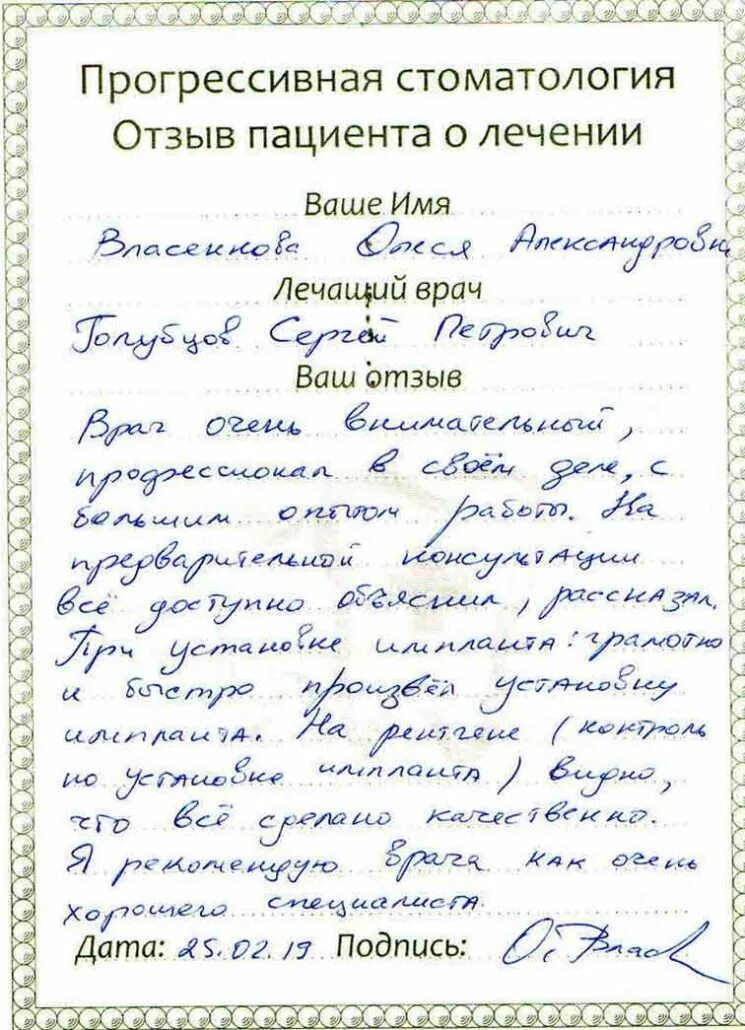 Прогрессивная стоматология
Отзыв пациента о лечении
Ваше Имя
Власенкова Олеся Александровна
Лечащий врач
Голубцов Сергей Петрович
Ваш отзыв
Врач очень внимательный,
профессионал в своём деле, с
большим опытом работы. На
предварительной консультации
всё доступно объяснил, рассказал.
При установке импланта: грамотно
и быстро произвёл установку
импланта. На рентгене (контроль
по установке импланта) видно,
что всё сделано качественно.
Я рекомендую врача как очень
хорошего специалиста
Дата: 25.02.19 Подпись: